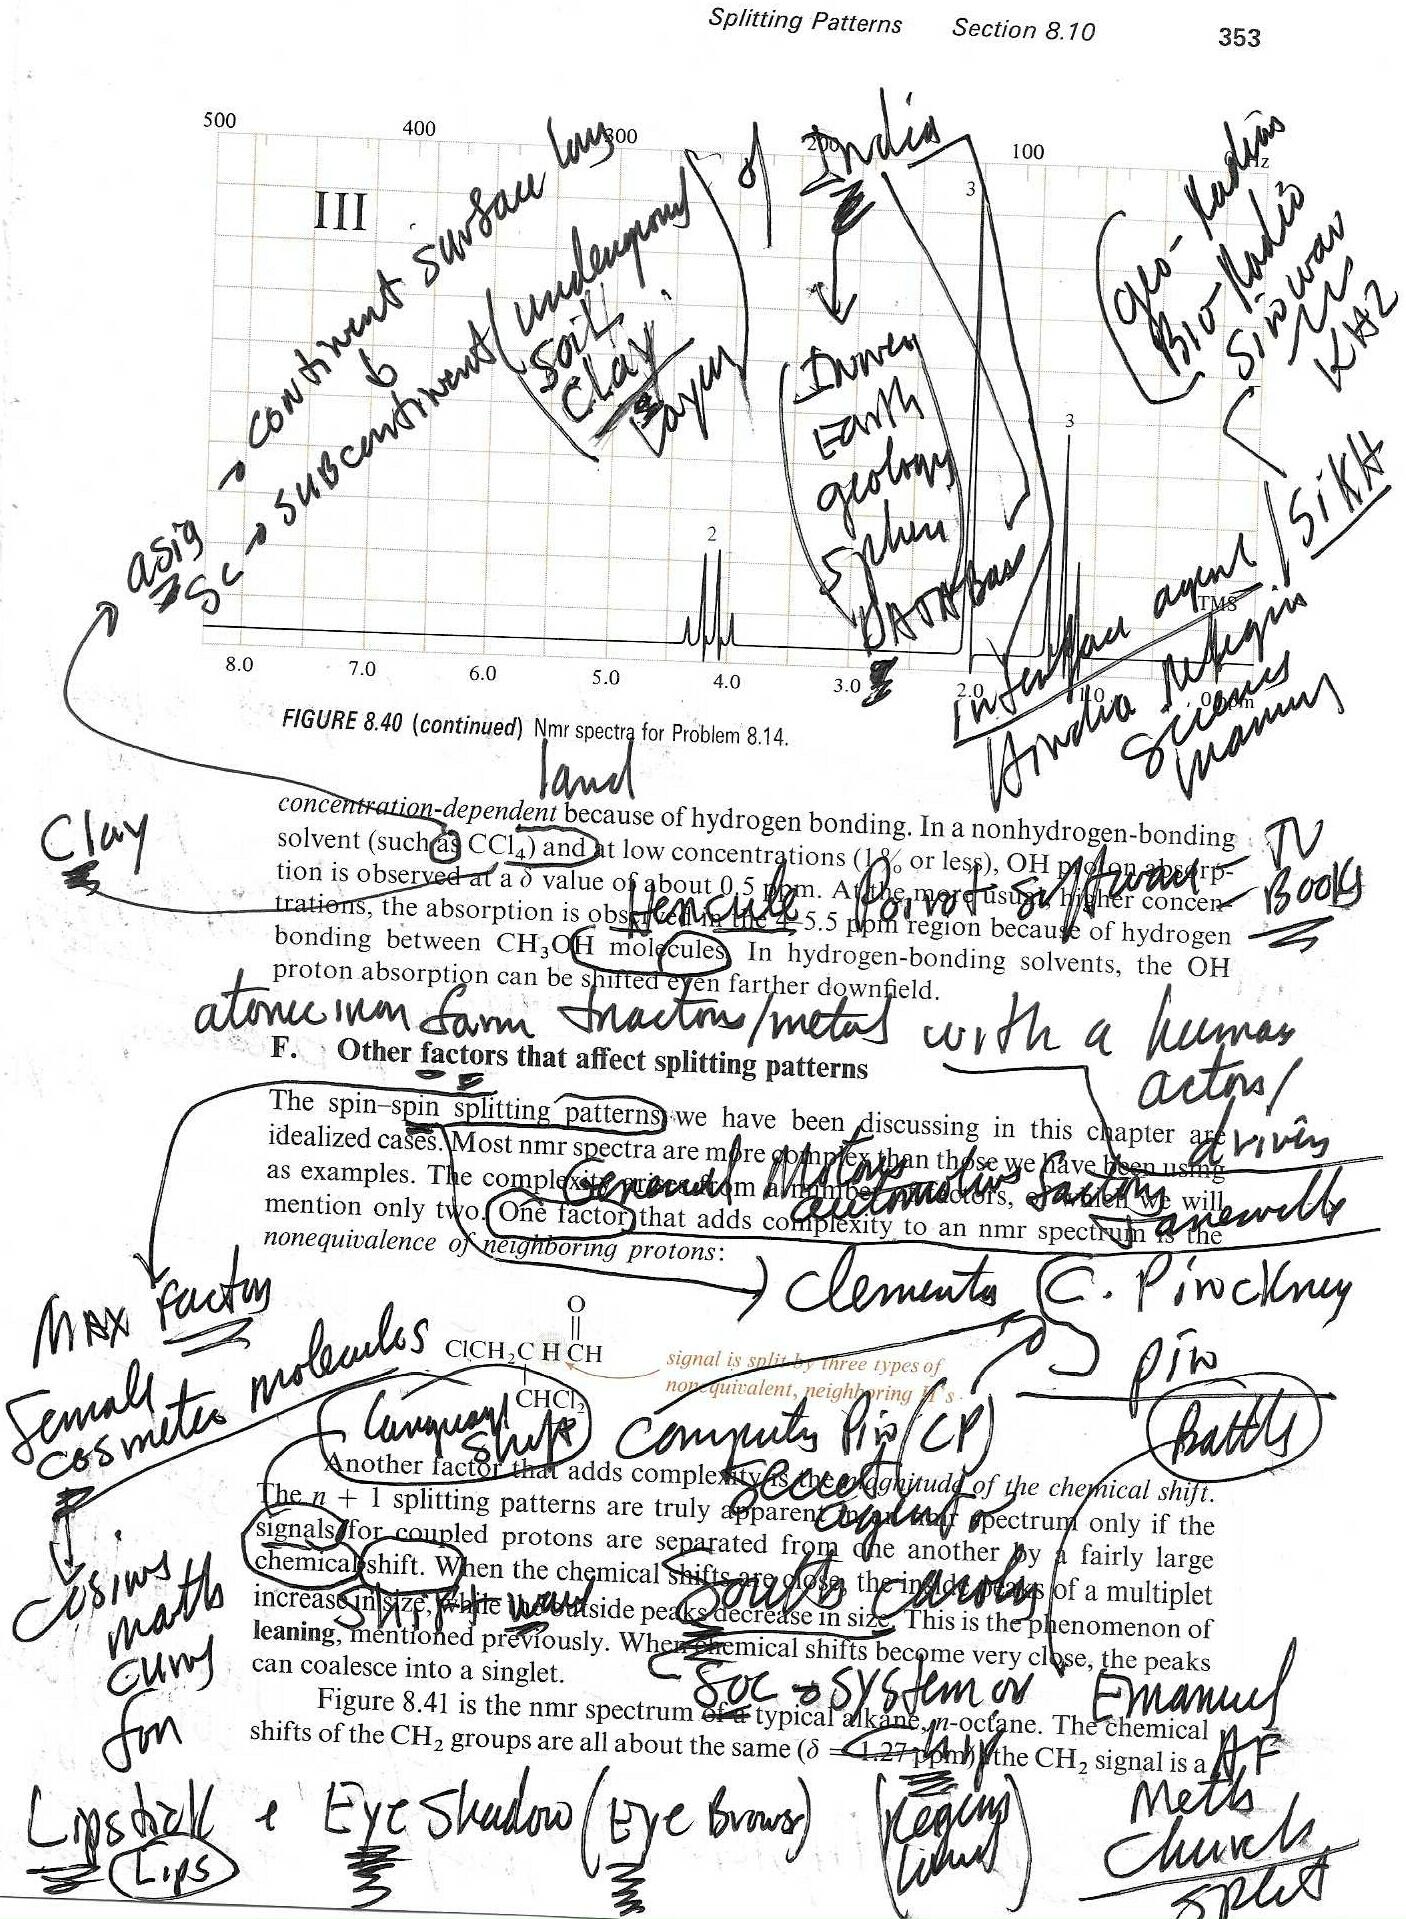 Splitting Patterns Section 8.10 353
500 400 300 200 100 Hz
III
3
3
2
TMS
8.0 7.0 6.0 5.0 4.0 3.0 2.0 1.0 0 ppm
of India
continent surface
subcontinent (underground
soil
clay
Layer
asia
Sc
Inner
Earth
geology
DATA Base
geo-
Bio-Radio
KHZ
SIKH
agent
FIGURE 8.40 (continued) Nmr spectra for Problem 8.14.
land
Clay
concentration-dependent because of hydrogen bonding. In a nonhydrogen-bonding
solvent (such as CCl4) and at low concentrations (1% or less), OH proton absorp-
tion is observed at a δ value of about 0.5 ppm. At the more usual, higher concen-
trations, the absorption is observed in the 4–5.5 ppm region because of hydrogen
bonding between CH3OH molecules. In hydrogen-bonding solvents, the OH
proton absorption can be shifted even farther downfield.
Hercule Poirot software TV
Books
farm tractors/metal with a human
actors/
F. Other factors that affect splitting patterns
The spin–spin splitting patterns we have been discussing in this chapter are
idealized cases. Most nmr spectra are more complex than those we have been using
as examples. The complexity arises from a number of factors, of which we will
mention only two. One factor that adds complexity to an nmr spectrum is the
nonequivalence of neighboring protons:
General Motors
Clementa C. Pinckney
Pin
Battle
MAX Factor
female
cosmetic molecules
O
ClCH2C H CH
CHCl2
signal is split by three types of
nonequivalent, neighboring H's.
shift
Computer Pin (CP)
secret
agent or
Another factor that adds complexity is the magnitude of the chemical shift.
The n + 1 splitting patterns are truly apparent in an nmr spectrum only if the
signals for coupled protons are separated from one another by a fairly large
chemical shift. When the chemical shifts are close, the inside peaks of a multiplet
increase in size, while the outside peaks decrease in size. This is the phenomenon of
leaning, mentioned previously. When chemical shifts become very close, the peaks
can coalesce into a singlet.
South
Soc → system on
chip
Emanuel
AF
Meth
Church
split
Figure 8.41 is the nmr spectrum of a typical alkane, n-octane. The chemical
shifts of the CH2 groups are all about the same (δ = 1.27 ppm); the CH2 signal is a
cosine
math
curve
for
Lipstick & Eye Shadow (Eye Brows)
Lips